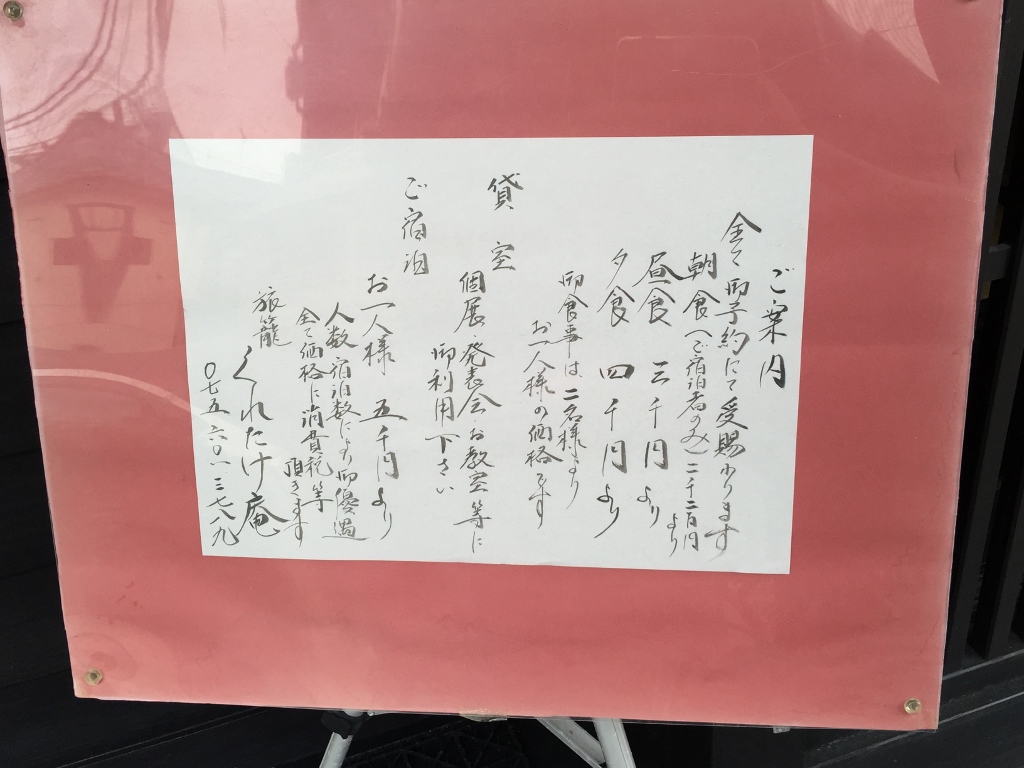 ご案内
全て御予約にて受賜わります
朝食(ご宿泊者のみ)二千二百円より
昼食 三千円より
夕食 四千円より
御食事は二名様より
お一人様の価格です
貸室
個展・発表会・お教室等に
御利用下さい
ご宿泊
お一人様 五千円より
人数宿泊数により御優遇
全て価格に消費税等
頂きます
旅籠 くれたけ庵
〇七五 六〇一 三七八九